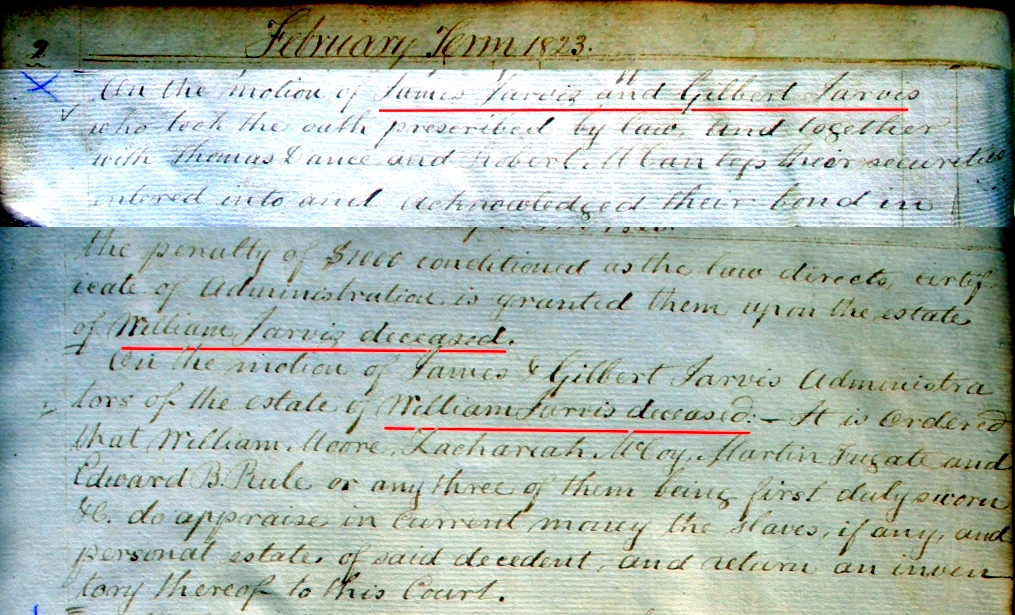 2
February Term 1823.
On the motion of James Jarvis and Gilbert Jarvis
who took the oath prescribed by law, and together
with Thomas Dance and Robert their securities
entered into and acknowledged their bond in
the penalty of $1000 conditioned as the law directs, certif-
icate of Administration is granted them upon the estate
of William Jarvis deceased.
On the motion of James & Gilbert Jarvis Administra
tors of the estate of William Jarvis deceased:- It is Ordered
that William Moore, Zachariah McCoy, Martin Fugate and
Edward B. Rule or any three of them being first duly sworn
&C. do appraise in current money the slaves, if any, and
personal estate, of said decedent, and return an inven
tory thereof to this Court.